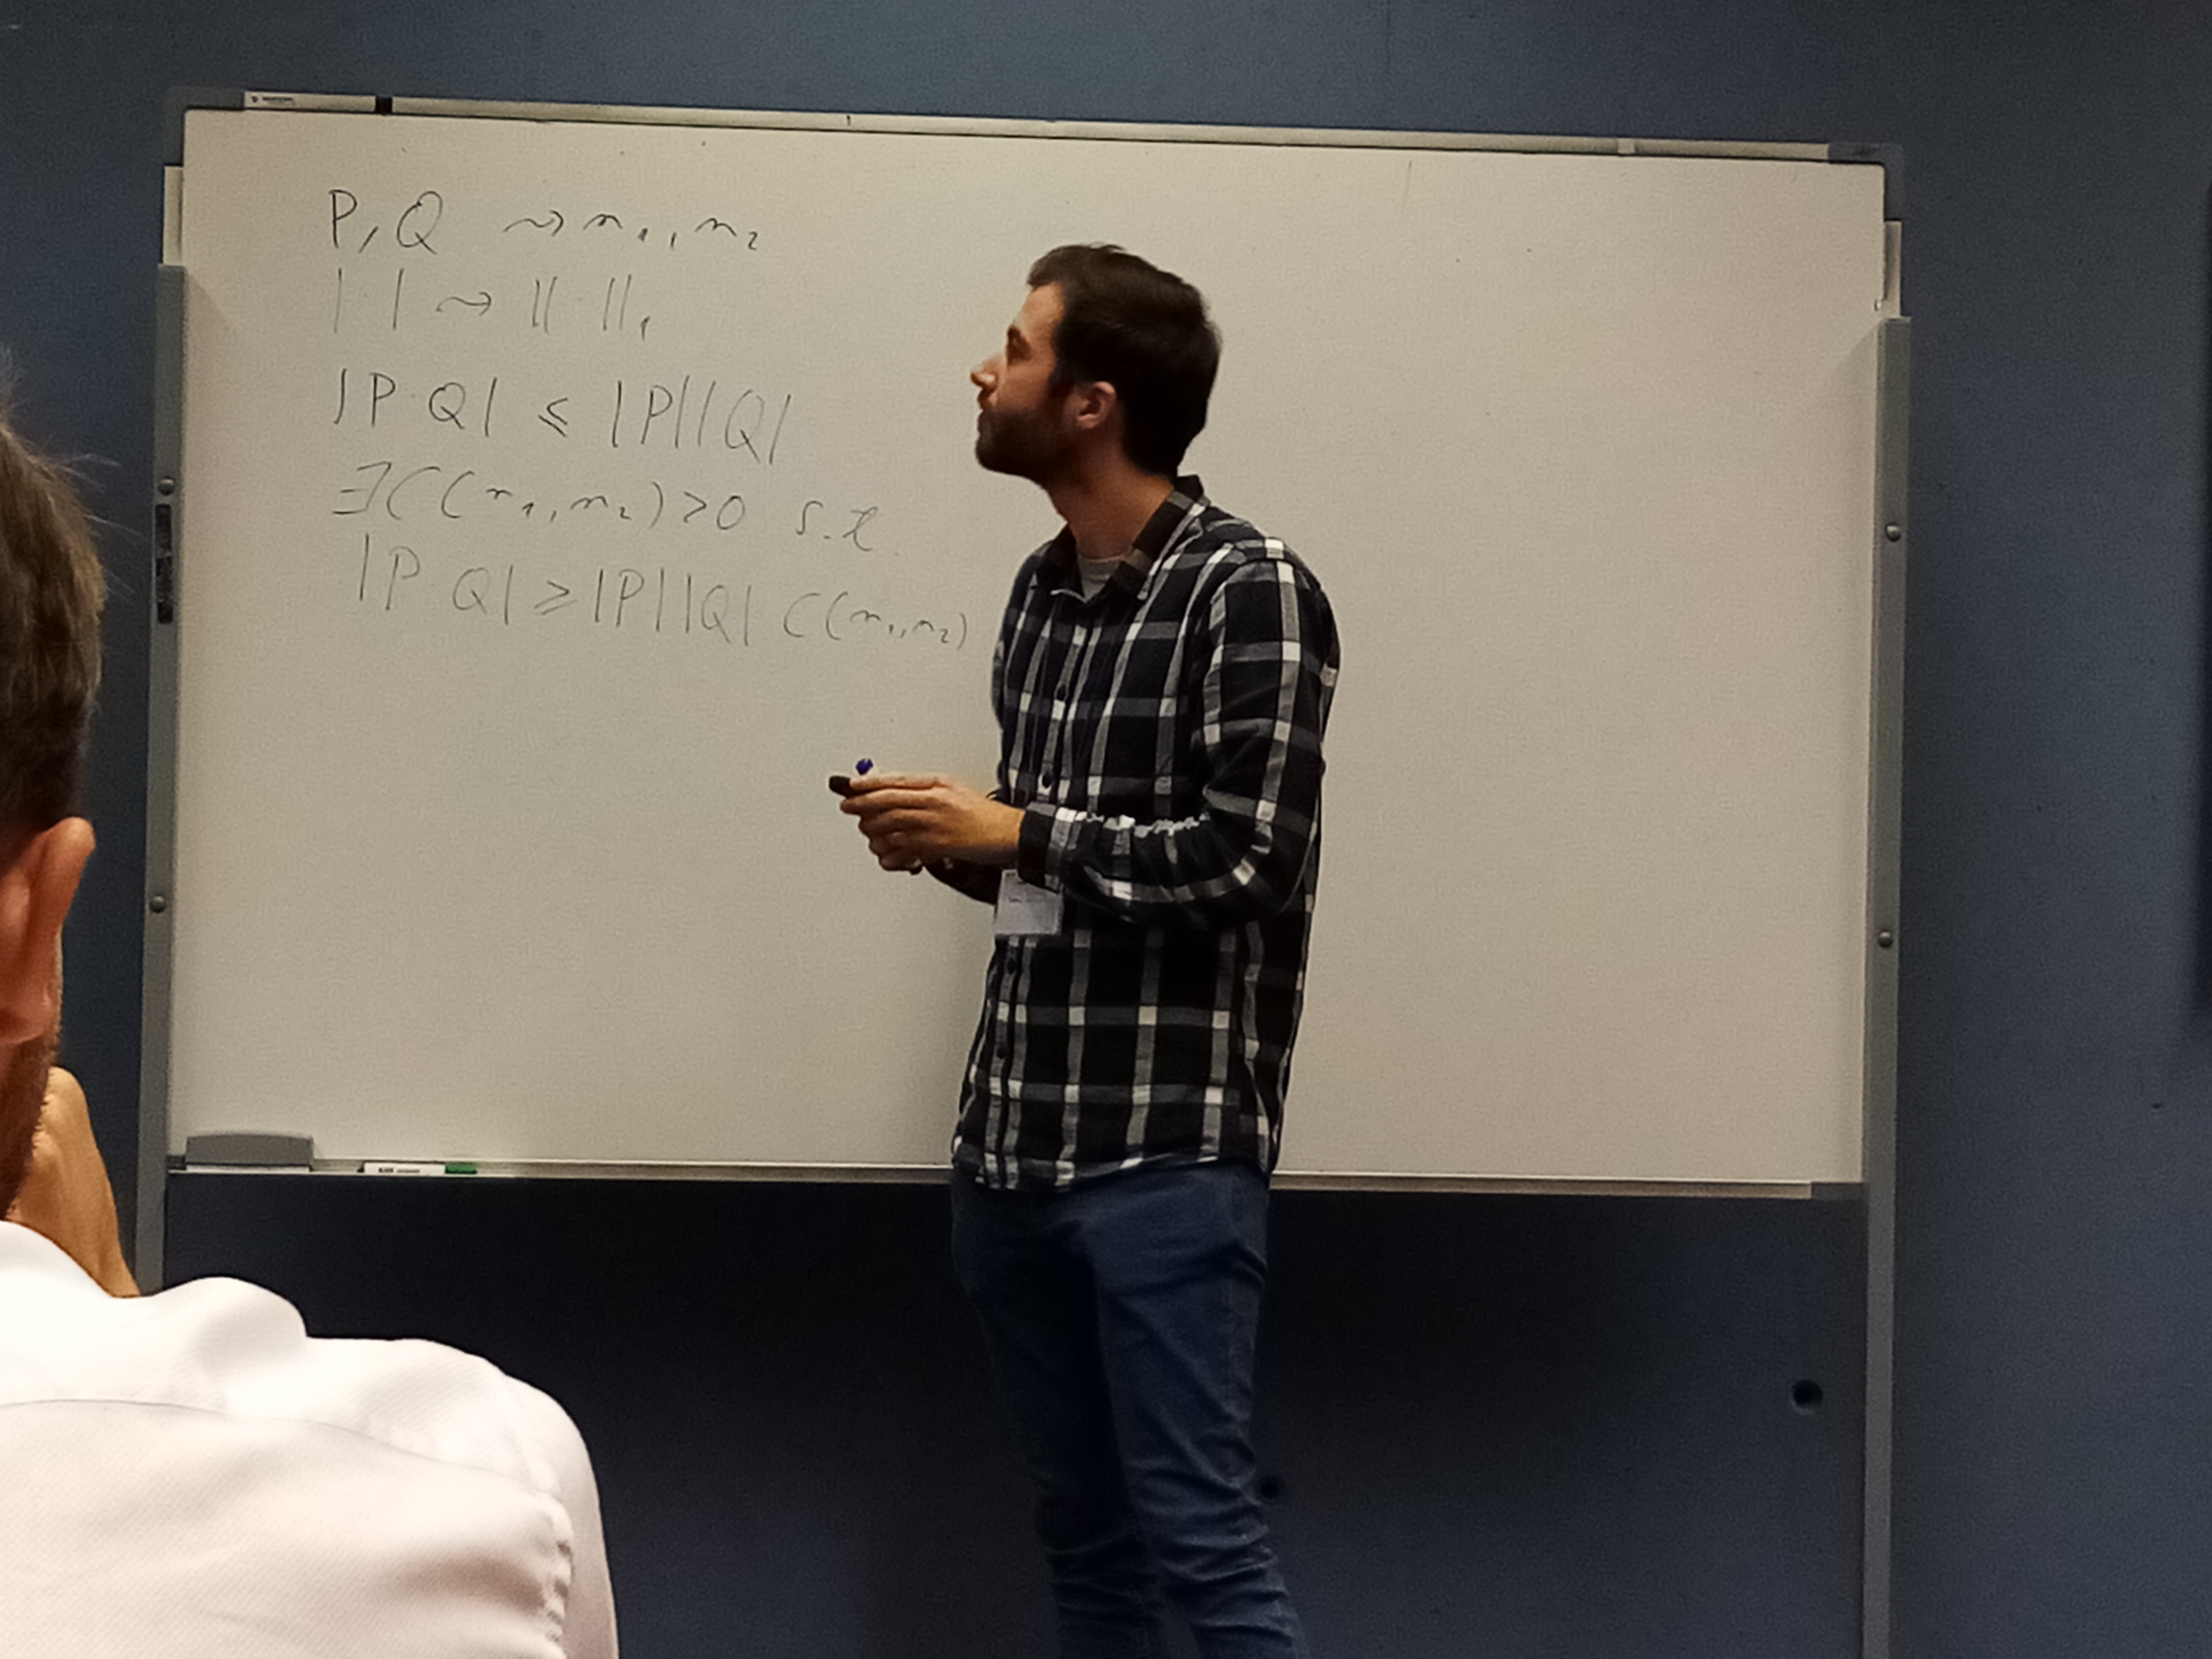 P, Q ⇝ n₁, n₂
| · | ⇝ || · ||₁
|P · Q| ⩽ |P||Q|
∃ C(n₁, n₂) > 0 s.t.
|P · Q| ⩾ |P||Q| C(n₁, n₂)